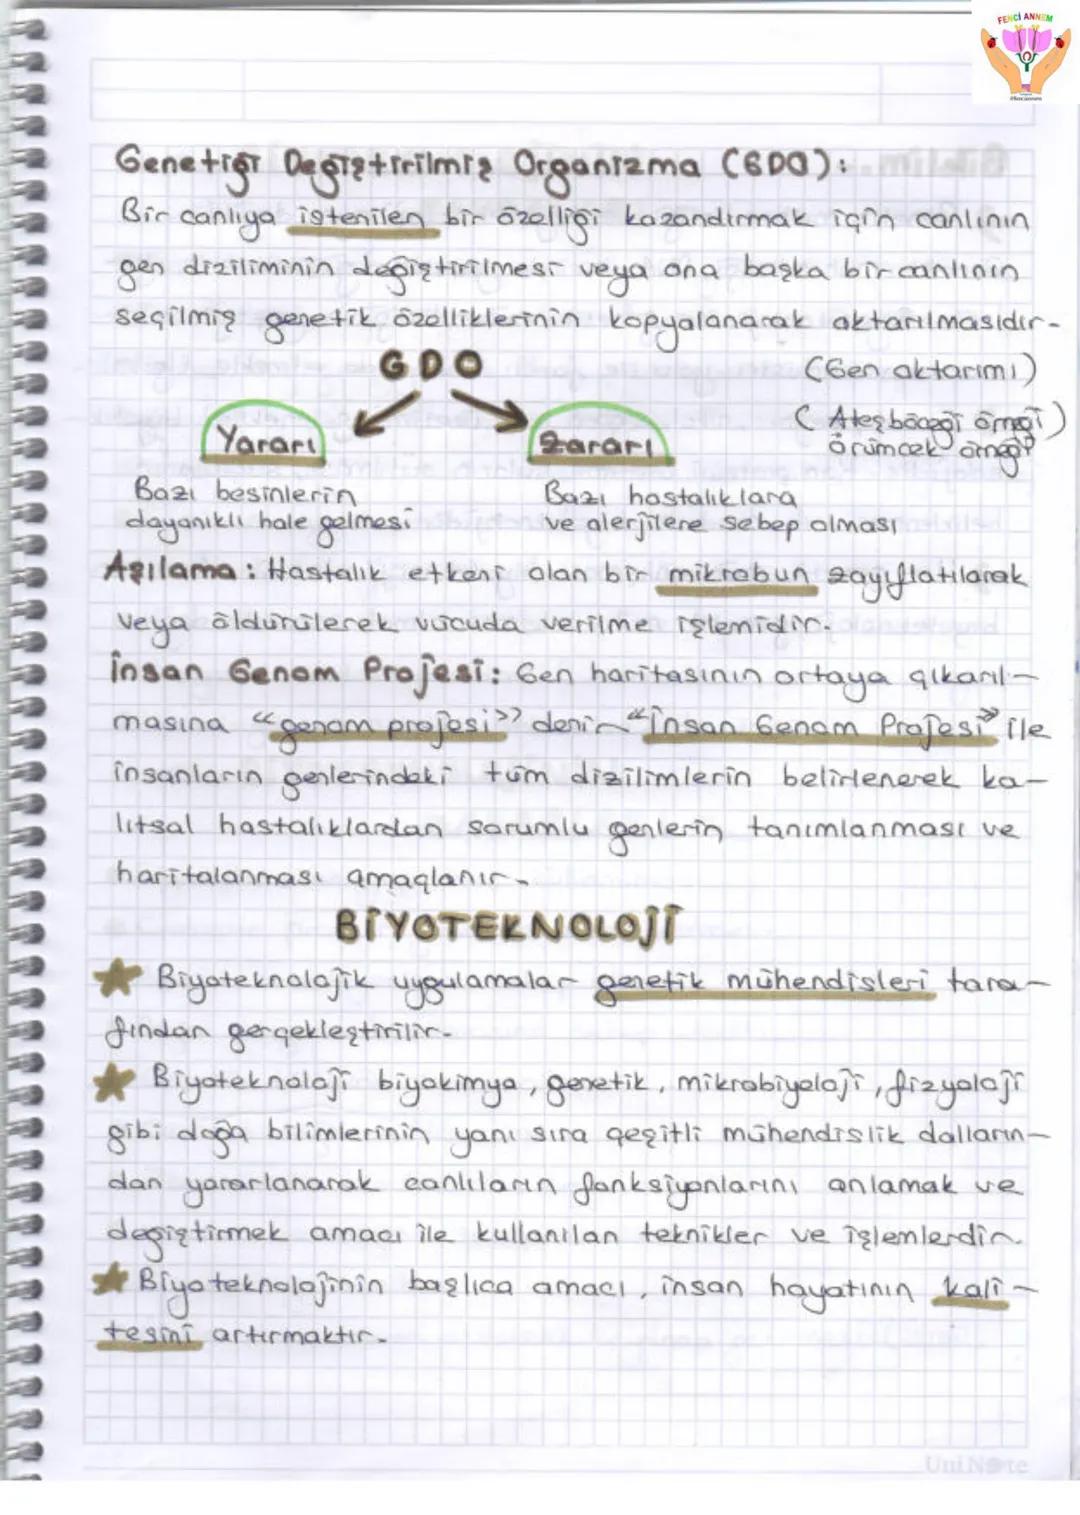 FENCİ ANNEM
Genetiği Değiştirilmiş Organizma (GDO):
Bir canlıya istenilen bir özelliği kazandırmak için canlının
gen diziliminin değiştirilmesi veya ona başka bir canlının
seçilmiş genetik özelliklerinin kopyalanarak aktarılmasıdır.
GDO
(Gen aktarımı)
( Ateşböceği örneği )
örümcek örneği
Yararı
Zararı
Bazı besinlerin
dayanıklı hale gelmesi
Bazı hastalıklara
ve alerjilere sebep olması
Aşılama: Hastalık etkeni olan bir mikrobun zayıflatılarak
veya öldürülerek vücuda verilme işlemidir.
İnsan Genom Projesi: Gen haritasının ortaya çıkarıl-
masına "genom projesi" denir "İnsan Genom Projesi" ile
insanların genlerindeki tüm dizilimlerin belirlenerek ka-
lıtsal hastalıklardan sorumlu genlerin tanımlanması ve
haritalanması amaçlanır.
BİYOTEKNOLOJİ
Biyoteknolojik uygulamalar genetik mühendisleri tara-
fından gerçekleştirilir.
Biyoteknoloji biyokimya, genetik, mikrobiyoloji, fizyoloji
gibi doğa bilimlerinin yanı sıra çeşitli mühendislik dalların-
dan yararlanarak canlıların fonksiyonlarını anlamak ve
değiştirmek amacı ile kullanılan teknikler ve işlemlerdir.
Biyoteknolojinin başlıca amacı, insan hayatının kali-
tesini artırmaktır.
UniNote